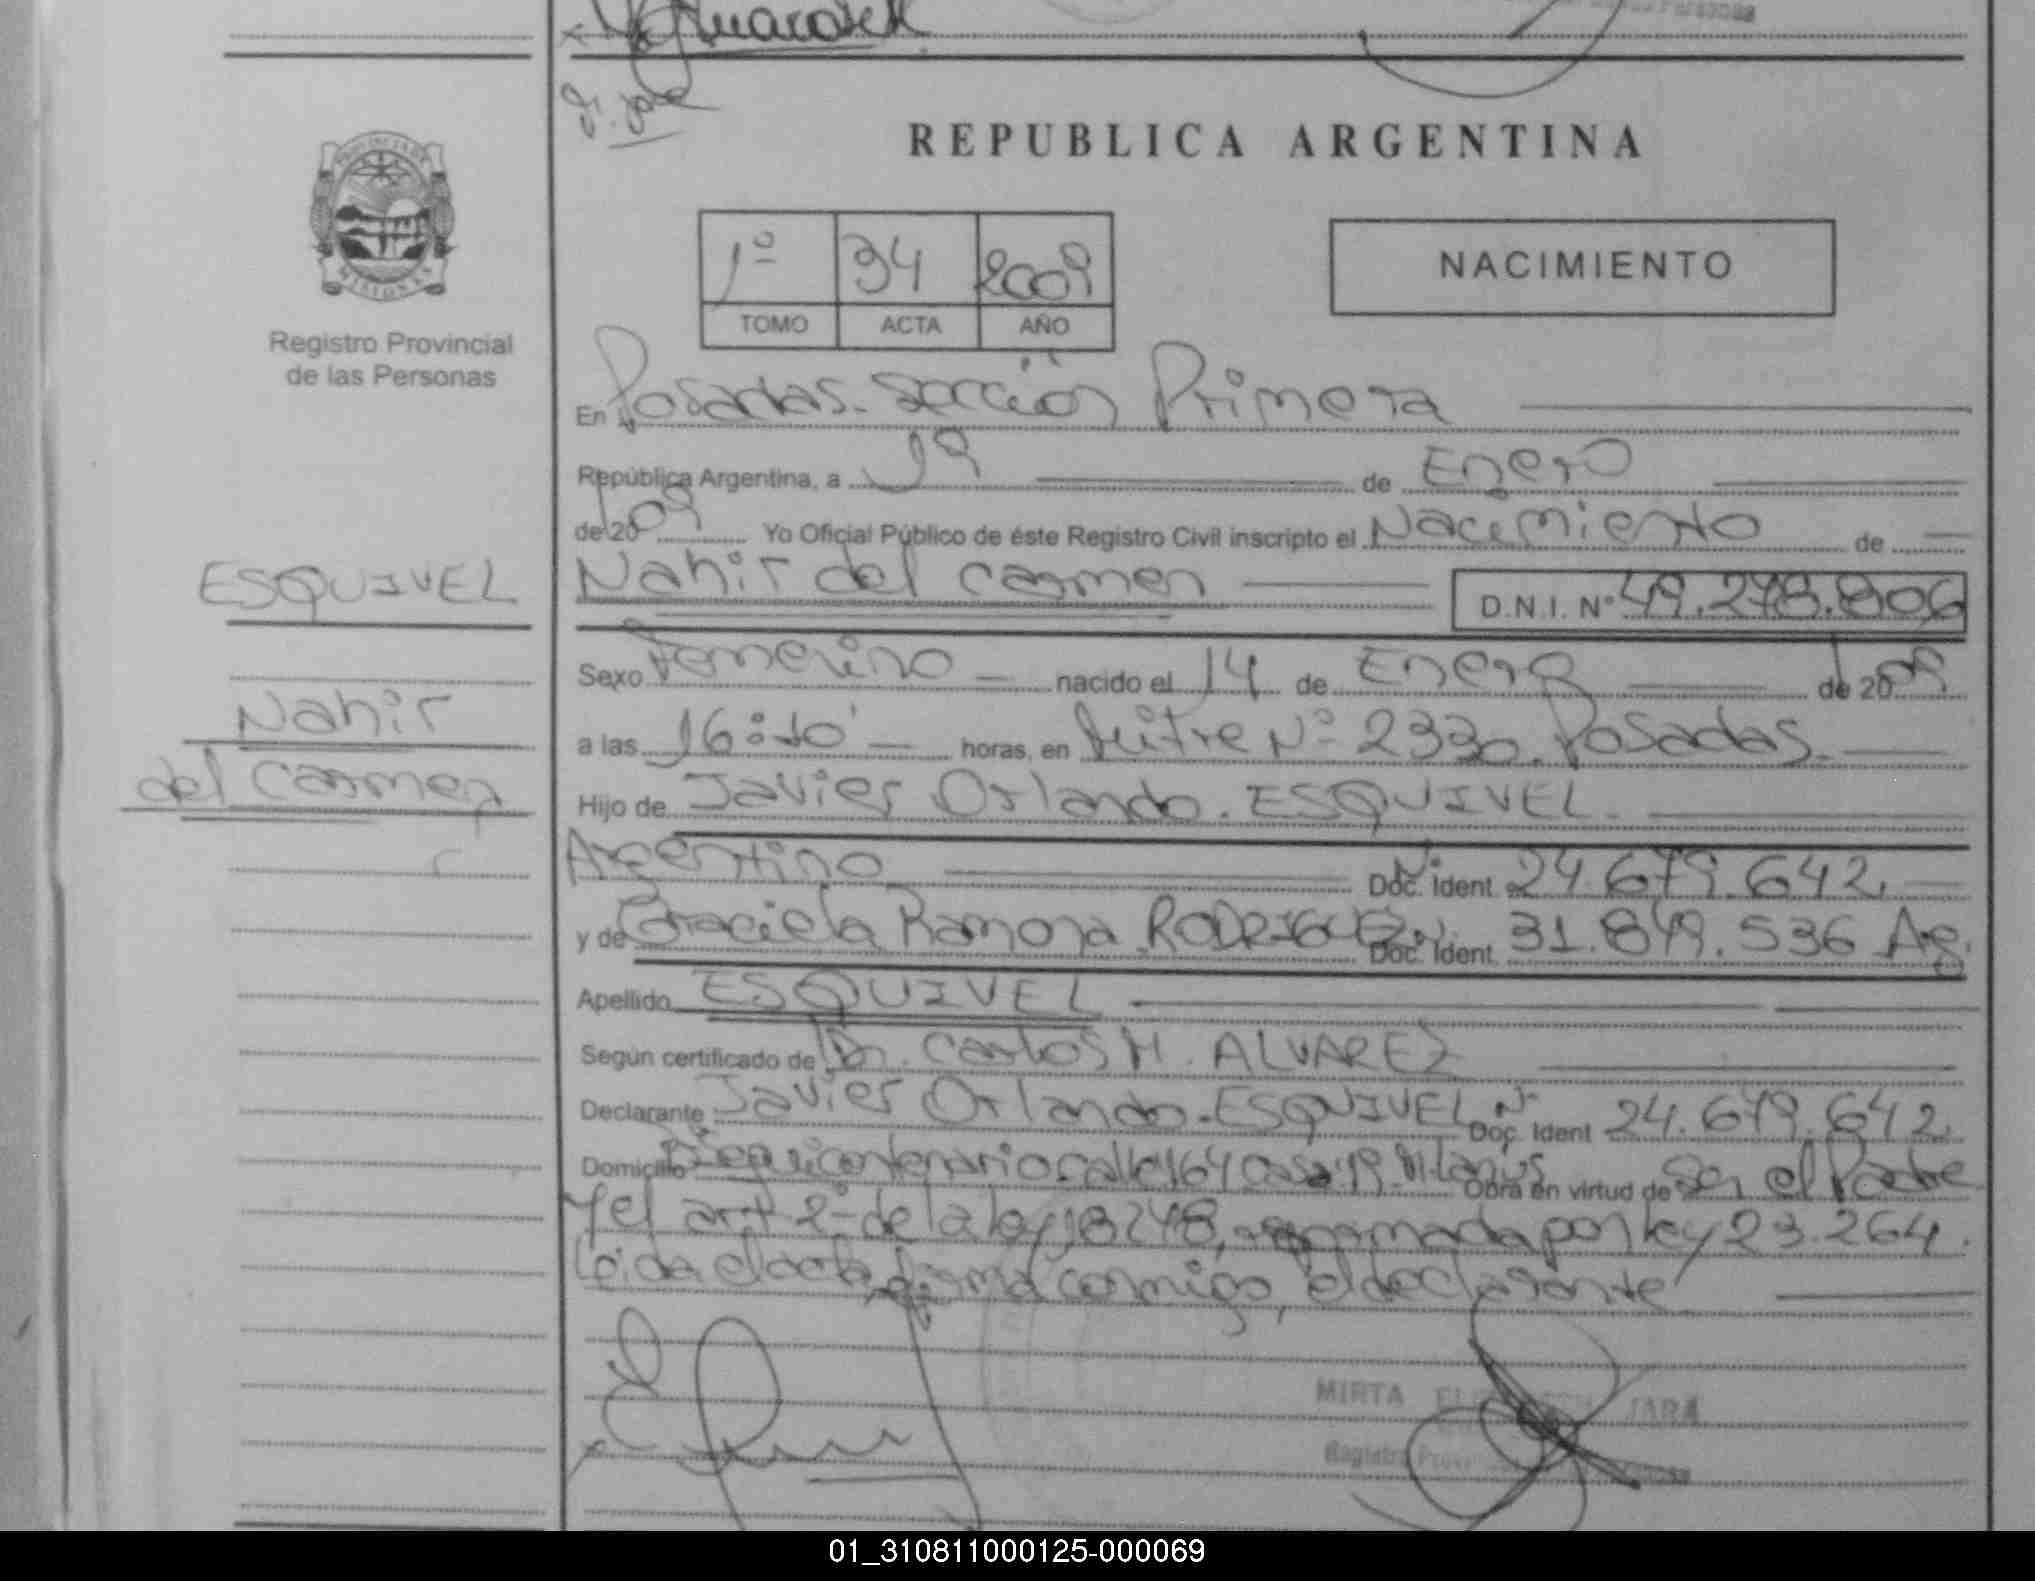 REPUBLICA ARGENTINA
PROVINCIA DE
MISIONES
Registro Provincial
de las Personas
1º 34 2009
TOMO ACTA AÑO
NACIMIENTO
En Posadas. Sección Primera
República Argentina, a 19 de Enero
de 2009 Yo Oficial Público de éste Registro Civil inscripto el Nacimiento de
ESQUIVEL
Nahir
del Carmen
Nahir del Carmen D.N.I. Nº 49.278.806
Sexo Femenino nacido el 14 de Enero de 2009
a las 16:10' horas, en Mitre Nº 2330. Posadas.
Hijo de Javier Orlando. ESQUIVEL.
Argentino Doc. Ident. Nº 24.679.642
y de Graciela Ramona RODRIGUEZ Doc. Ident. Nº 31.849.536 Arg.
Apellido ESQUIVEL
Según certificado de Dr. Carlos H. ALVAREZ
Declarante Javier Orlando. ESQUIVEL Doc. Ident Nº 24.679.642
Domicilio calle 164 casa 19. Obra en virtud de Ser el Padre
y el art 2º de la ley 18248, por ley 23.264.
Leida el acta, firma conmigo, el declarante
MIRTA JARA
Registro
01_310811000125-000069